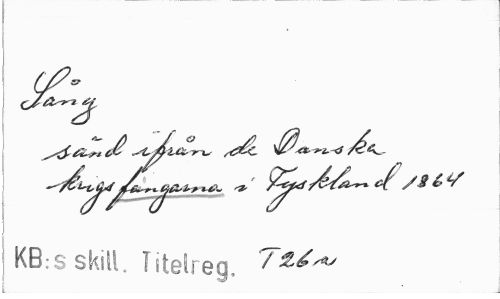 Sång
sänd ifrån de Danska
krigsfångarna i Tyskland 1864
KB:s skill. Titelreg. T26a